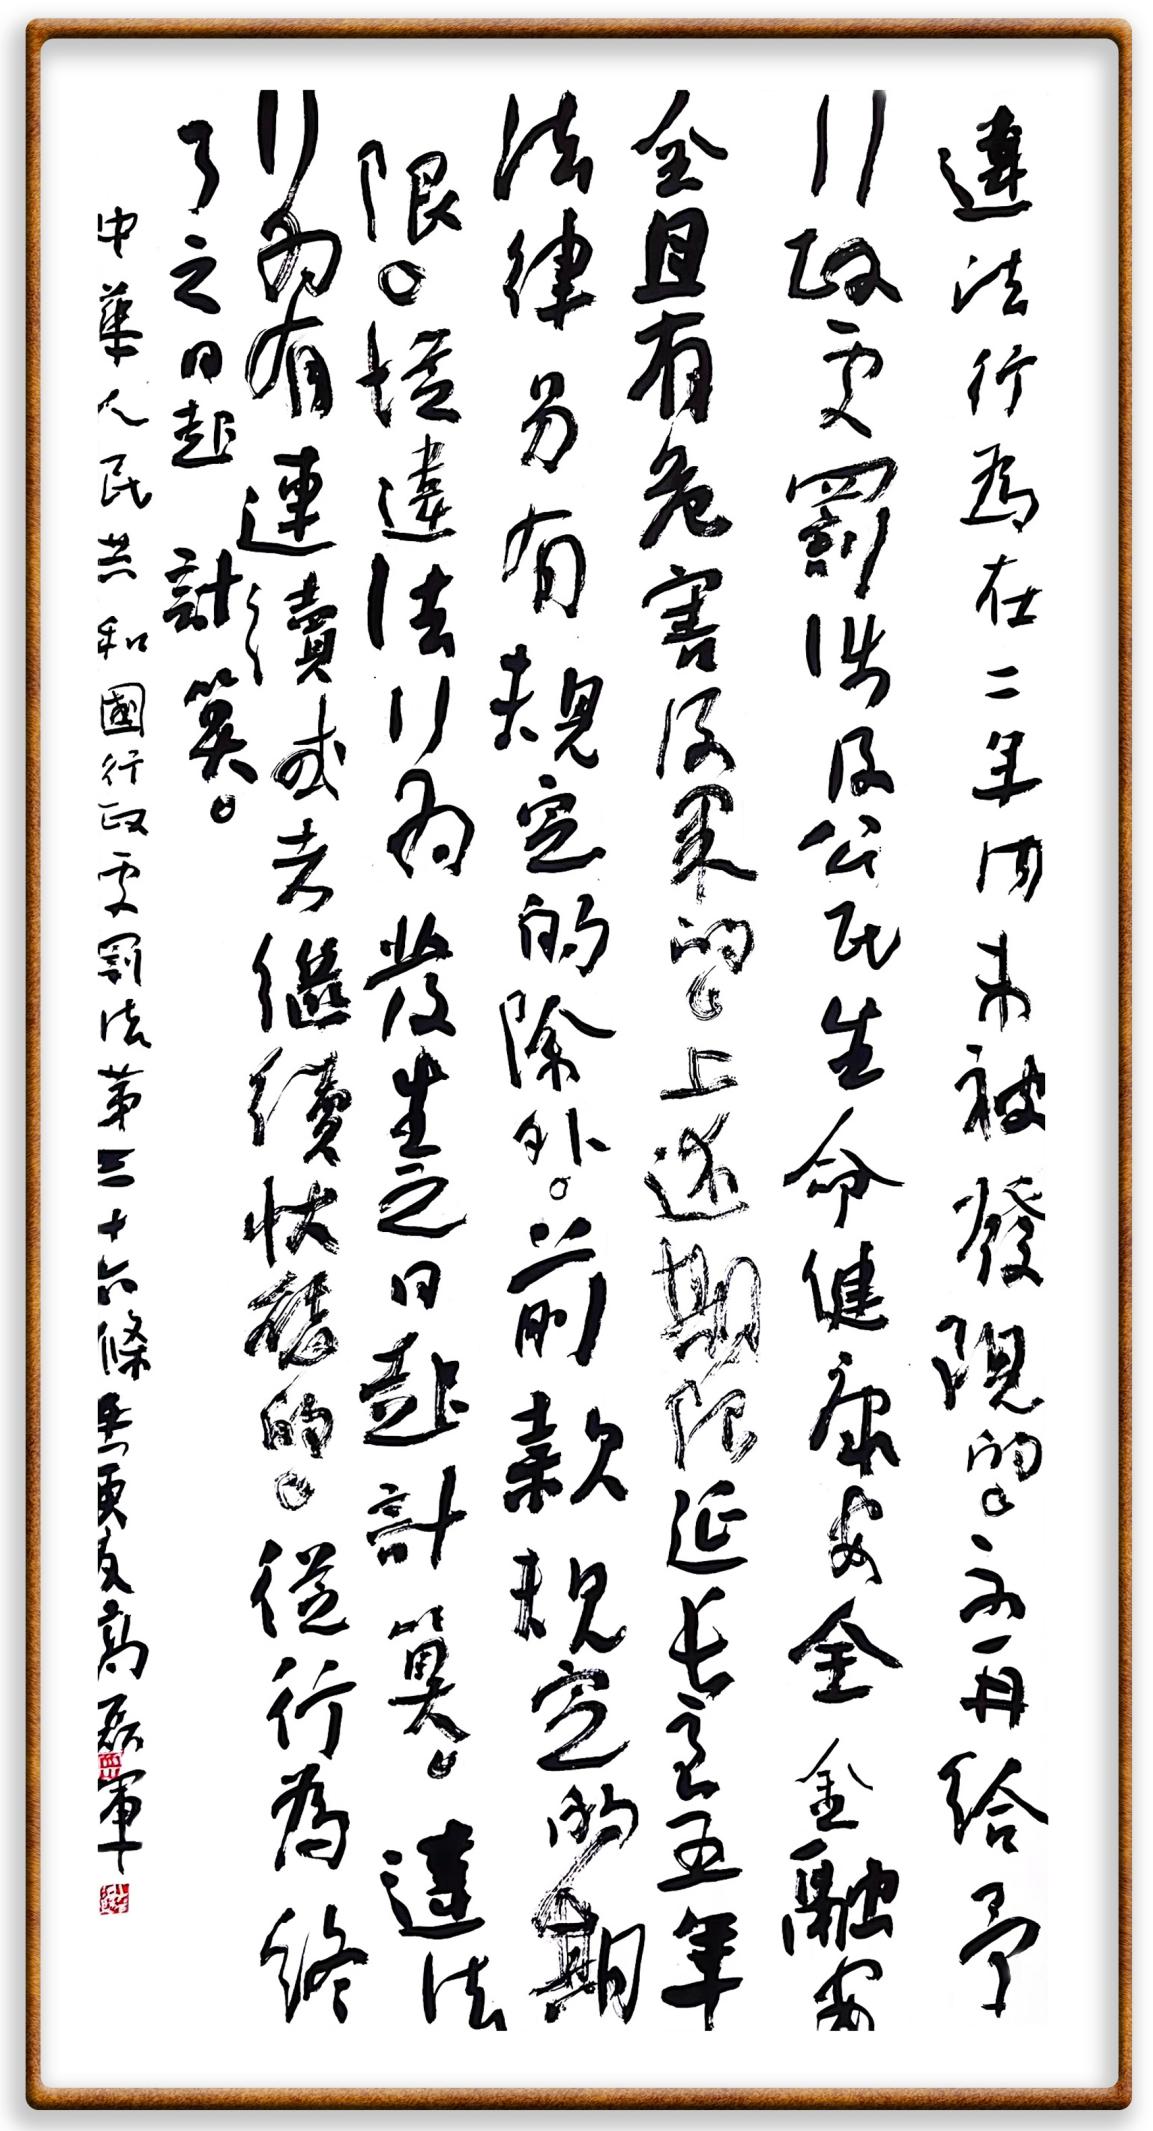 違法行為在二年内未被發現的。不再給予
行政處罰涉及公民生命健康安全金融安
全且有危害後果的。上述期限延长至五年
法律另有規定的除外。前款規定的期
限。從違法行为發生之日起計算。違法
行为有連續或者繼續狀態的。從行為終
了之日起計算。
中華人民共和國行政處罰法第三十六條 高磊軍